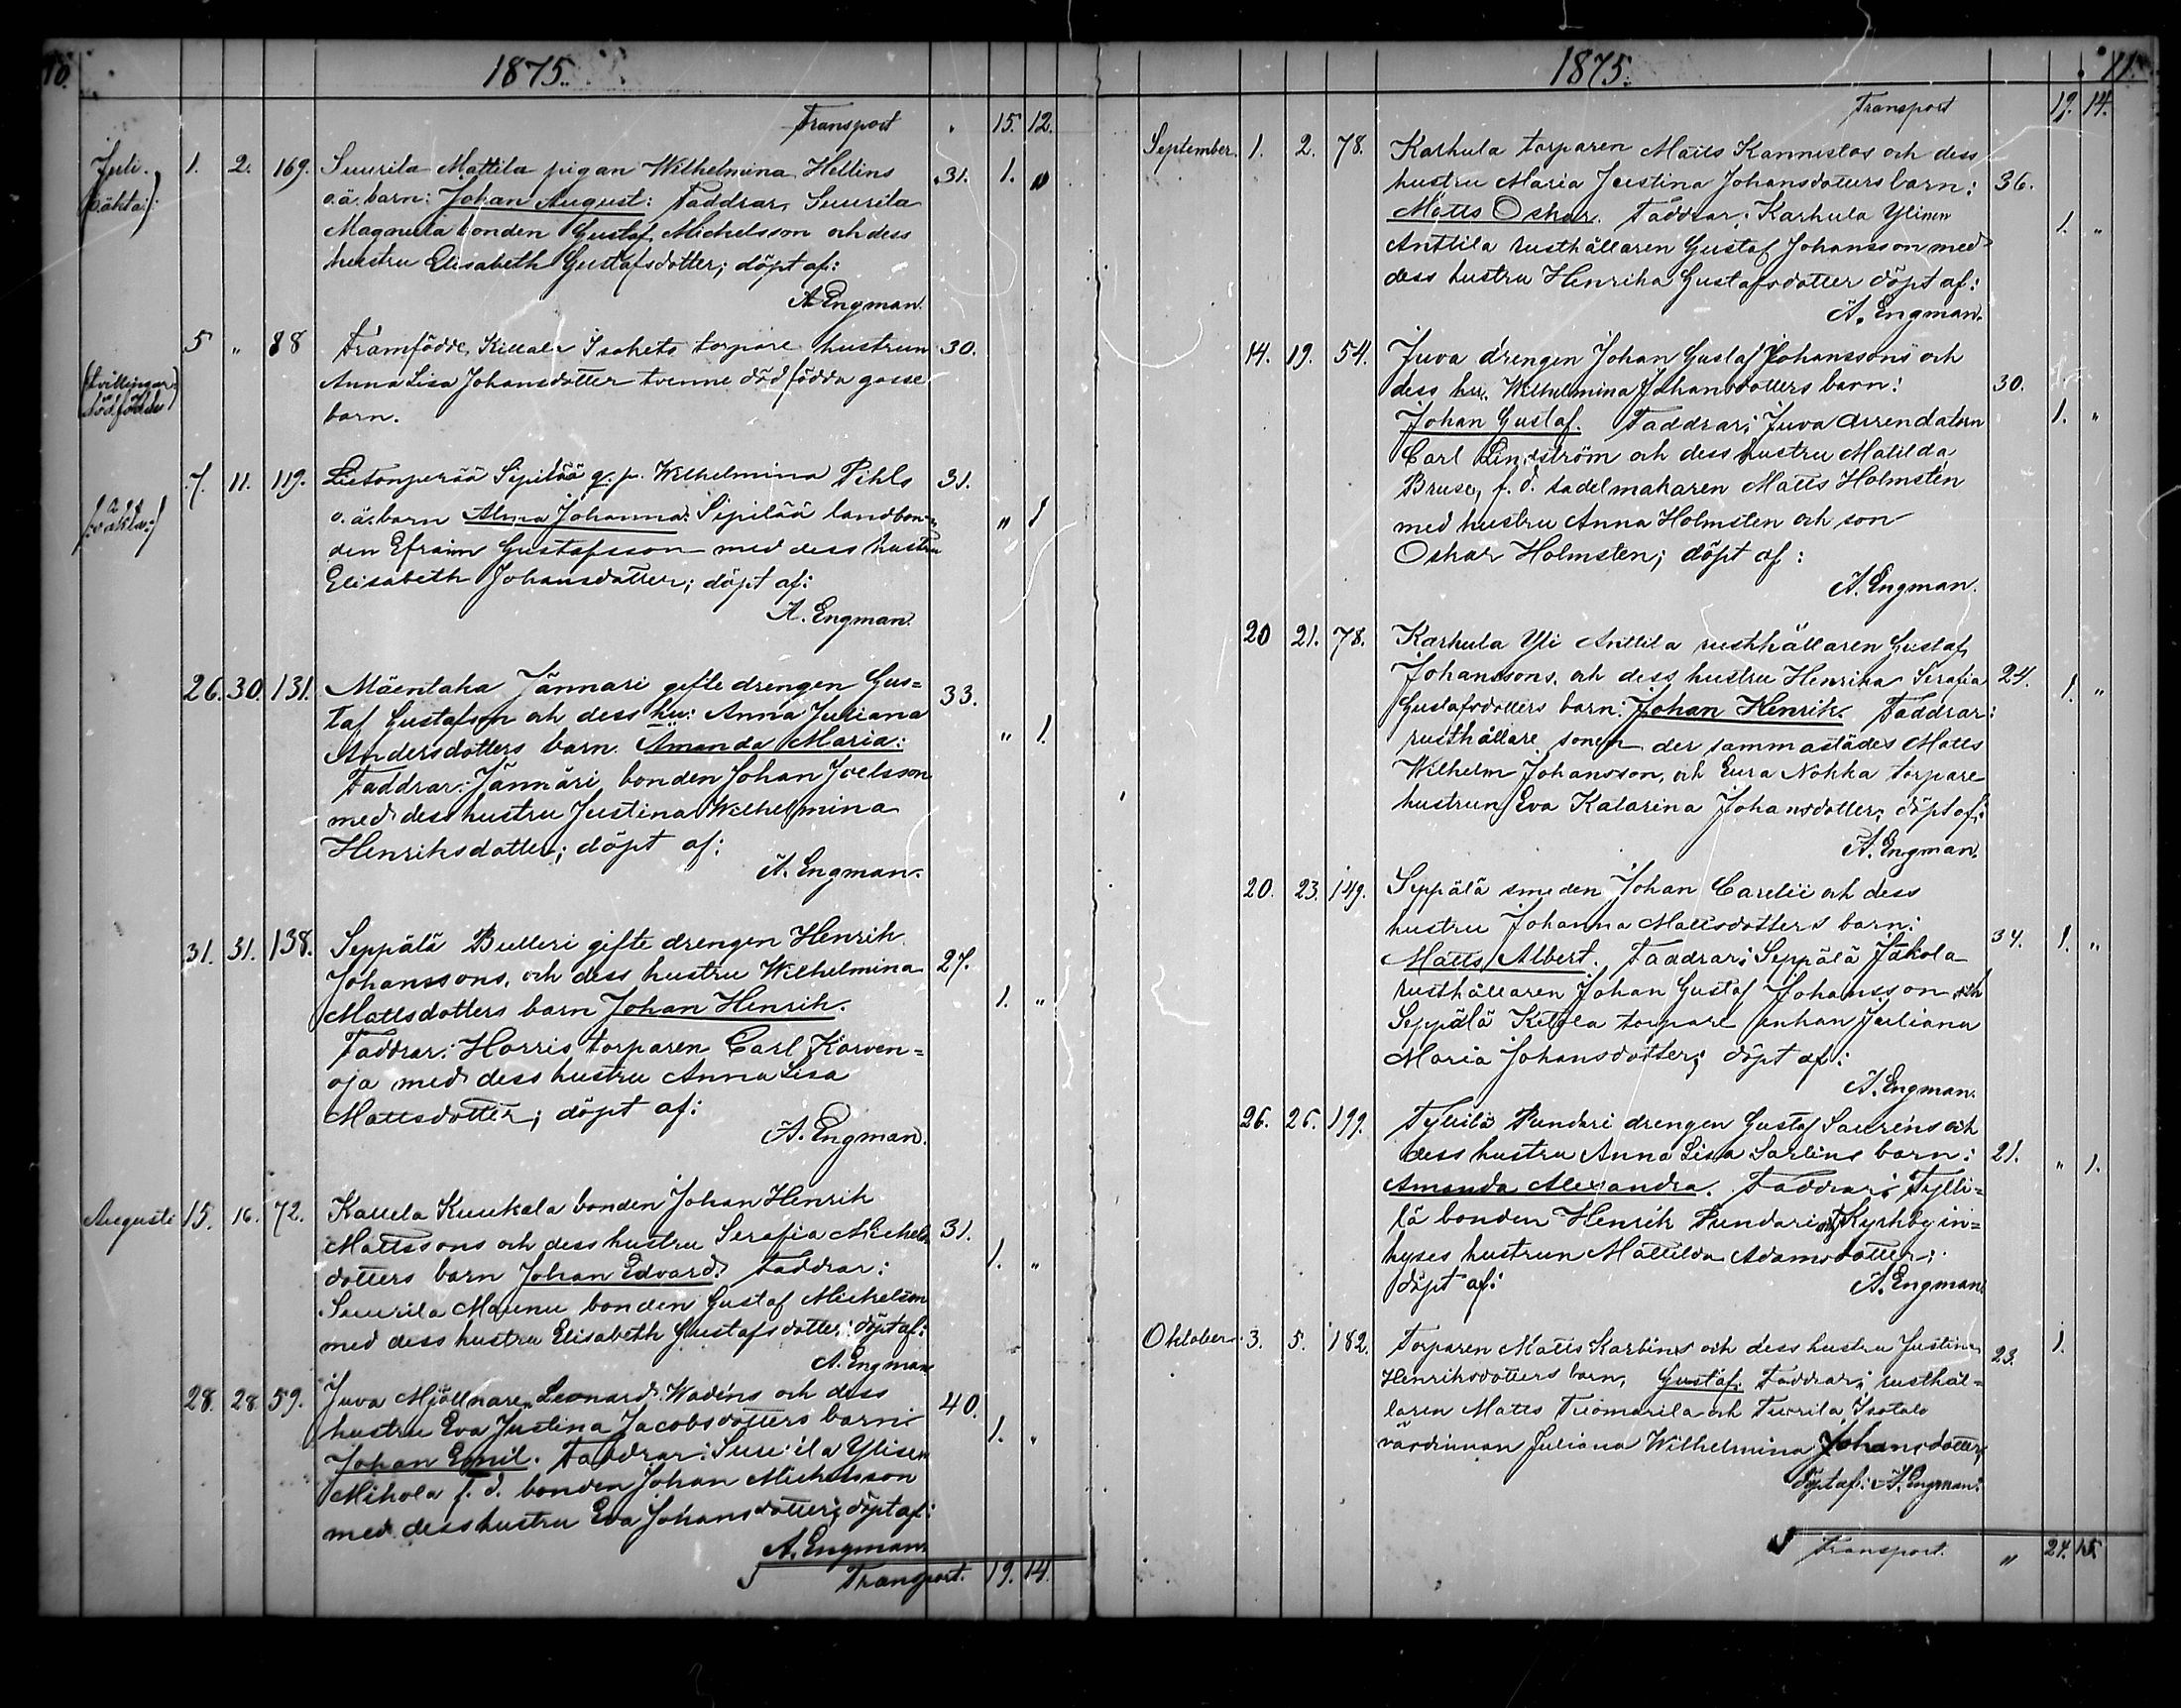 10.
1875.
Transport " 15. 12.
Juli. 1. 2. 169. Suurila Mattila pigan Wilhelmina Hellins 31. 1. "
(oäkta:) o.ä. barn: Johan August: Faddrar, Suurila
bonden Gustaf Michelsson och dess
hustru Elisabeth Gustafsdotter; döpt af:
A. Engman.
5 " 88 Framfödde, Isakets torpare hustrun 30.
(tvillingar Anna Lisa Johansdotter tvenne död födda gosse
dödfödde) barn.
7. 11. 119. Lietonperää Sipilää q. p. Wilhelmina Pihls 31.
(:oäkta:) o.ä. barn Alma Johanna: Sipilää landbon- " 1
den Efraim Gustafsson med dess hustru
Elisabeth Johansdotter; döpt af:
A. Engman.
26. 30. 131. Mäentaka Jännäri gifte drengen Gus= 33.
taf Gustafson och dess hu: Anna Juliana
Andersdotters barn. Amanda Maria: " 1.
Faddrar: Jännäri bonden Johan Joelsson
med dess hustru Justina Wilhelmina
Henriksdotter; döpt af:
A. Engman.
31. 31. 138. Seppälä Bulleri gifte drengen Henrik
Johanssons, och dess hustru Wilhelmina 27.
Mattsdotters barn Johan Henrik. 1. "
Faddrar: Horris torparen Carl Korven=
oja med dess hustru Anna Lisa
Mattsdotter; döpt af:
A. Engman.
Augusti 15. 16. 72. Kauela Kuukala bonden Johan Henrik
Mattssons och dess hustru Serafia Michels- 31.
dotters barn Johan Edvard. Faddrar: 1. "
Suurila Maunu bonden Gustaf Michelson
med dess hustru Elisabeth Gustafsdotter: döpt af:
A. Engman.
28. 28. 59. Juva Mjöllnaren Leonard Wadéns och dess 40.
hustru Eva Justina Jacobsdotters barn: 1. "
Johan Emil. Faddrar: Suurila Ylisen
Mikola f. d. bonden Johan Michelsson
med dess hustru Eva Johansdotter; döpt af:
A. Engman.
Transport. 19. 14.
1875. 11.
Transport 19. 14.
September. 1. 2. 78. Karhula torparen Matts Kannistos och dess
hustru Maria Justina Johansdotters barn: 36.
Matts Oskar. Faddrar: Karhula Ylinen 1. "
Anttila rusthållaren Gustaf Johansson med
dess hustru Henrika Gustafsdotter döpt af:
A. Engman.
14. 19. 54. Juva drengen Johan Gustaf Johanssons och
dess hu. Wilhelmina Johansdotters barn: 30.
Johan Gustaf. Faddrar: Juva arrendatorn 1. "
Carl Lindström och dess hustru Matilda
Bruse, f. d. sadelmakaren Matts Holmstén
med hustru Anna Holmsten och son
Oskar Holmsten; döpt af:
A. Engman.
20 21. 78. Karhula Yli Anttila rusthållaren Gustaf
Johanssons, och dess hustru Henrika Serafia 24. 1. "
Gustafsdotters barn: Johan Henrik. Faddrar:
rusthållare sonen der sammastädes Matts
Wilhelm Johansson, och Eura Nokka torpare
hustrun Eva Katarina Johansdotter; döpt af:
A. Engman.
20. 23. 149. Seppälä smeden Johan Carelii och dess
hustru Johanna Mattsdotters barn: 34. 1. "
Matts Albert. Faddrar: Seppälä Jakola
rusthållaren Johan Gustaf Johansson och
Seppälä Ketola torpare enkan Juliana
Maria Johansdotter; döpt af:
A. Engman.
26. 26. 199. Tyllilä Pundari drengen Gustaf Sauréns och
dess hustru Anna Lisa Sarlins barn: 21. " 1.
Amanda Alexandra. Faddrar: Tylli=
lä bonden Henrik Pundari och Kyrkby in=
hyses hustrun Matilda Adamsdotter;
döpt af: A. Engman
Oktober 3. 5. 182. Torparen Matts Karlins och dess hustru Justina 23. 1.
Henriksdotters barn, Gustaf. Faddrar: rusthål=
laren Matts Tuomarila och Tuorila Isotalo
värdinnan Juliana Wilhelmina Johansdotter;
döpt af: A. Engman.
Transport. " 24. 15.